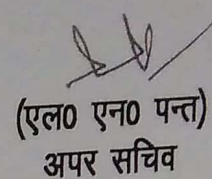 (एल० एन० पन्त)
अपर सचिव